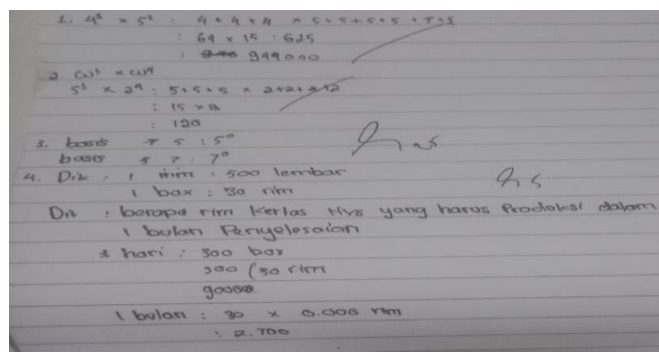 1. 4³ x 5³ : 4 + 4 + 4 x 5 + 5 + 5 + 5 + 5 + 5
: 64 x 15 : 625
: 944000
2
5³ x 2⁴ : 5 + 5 + 5 x 2 + 2 + 2 + 2
: 15 x 8
: 120
3. basis 5 : 5⁰
basis 7 : 7⁰
4. Dik : 1 rim : 500 lembar
1 box : 30 rim
Dit : berapa rim kertas Hvs yang harus Prodoksi dalam
1 bulan Penyelesaian
1 hari : 300 box
300 (30 rim
1 bulan : 30 x 0.000 rim
: 2.700